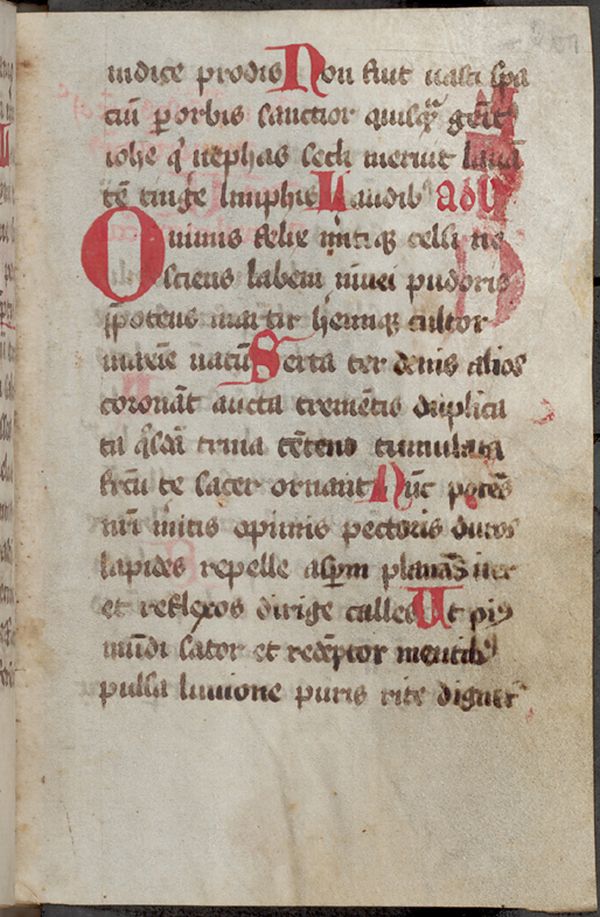 indice prodis Non fuit uasti spa
ciū ꝑ orbis sanctior quisqᷓ geīt͛
iohe qͥ nephas secli meruit lauā
tē tinge limphis Laudibꝰ ad ỻ
O nimis felix mitiqꝫ celsi ne
sciens labem niuei pudoris
ꝓpotens martir heremiqꝫ cultor
maxīe uatū Serta ter denis alios
coronāt aucta cremētis duplica
ta qͥsdā trina cēteno cumulata
fructū te sacer ornant Nūc potēs
nrī mitis opimis pectoris duros
lapides repelle aspm planās iter
et reflexos dirige calles Ut piꝰ
mūdi sator et redēptor mentibꝰ
pulsa liuione puris rite dignet͛